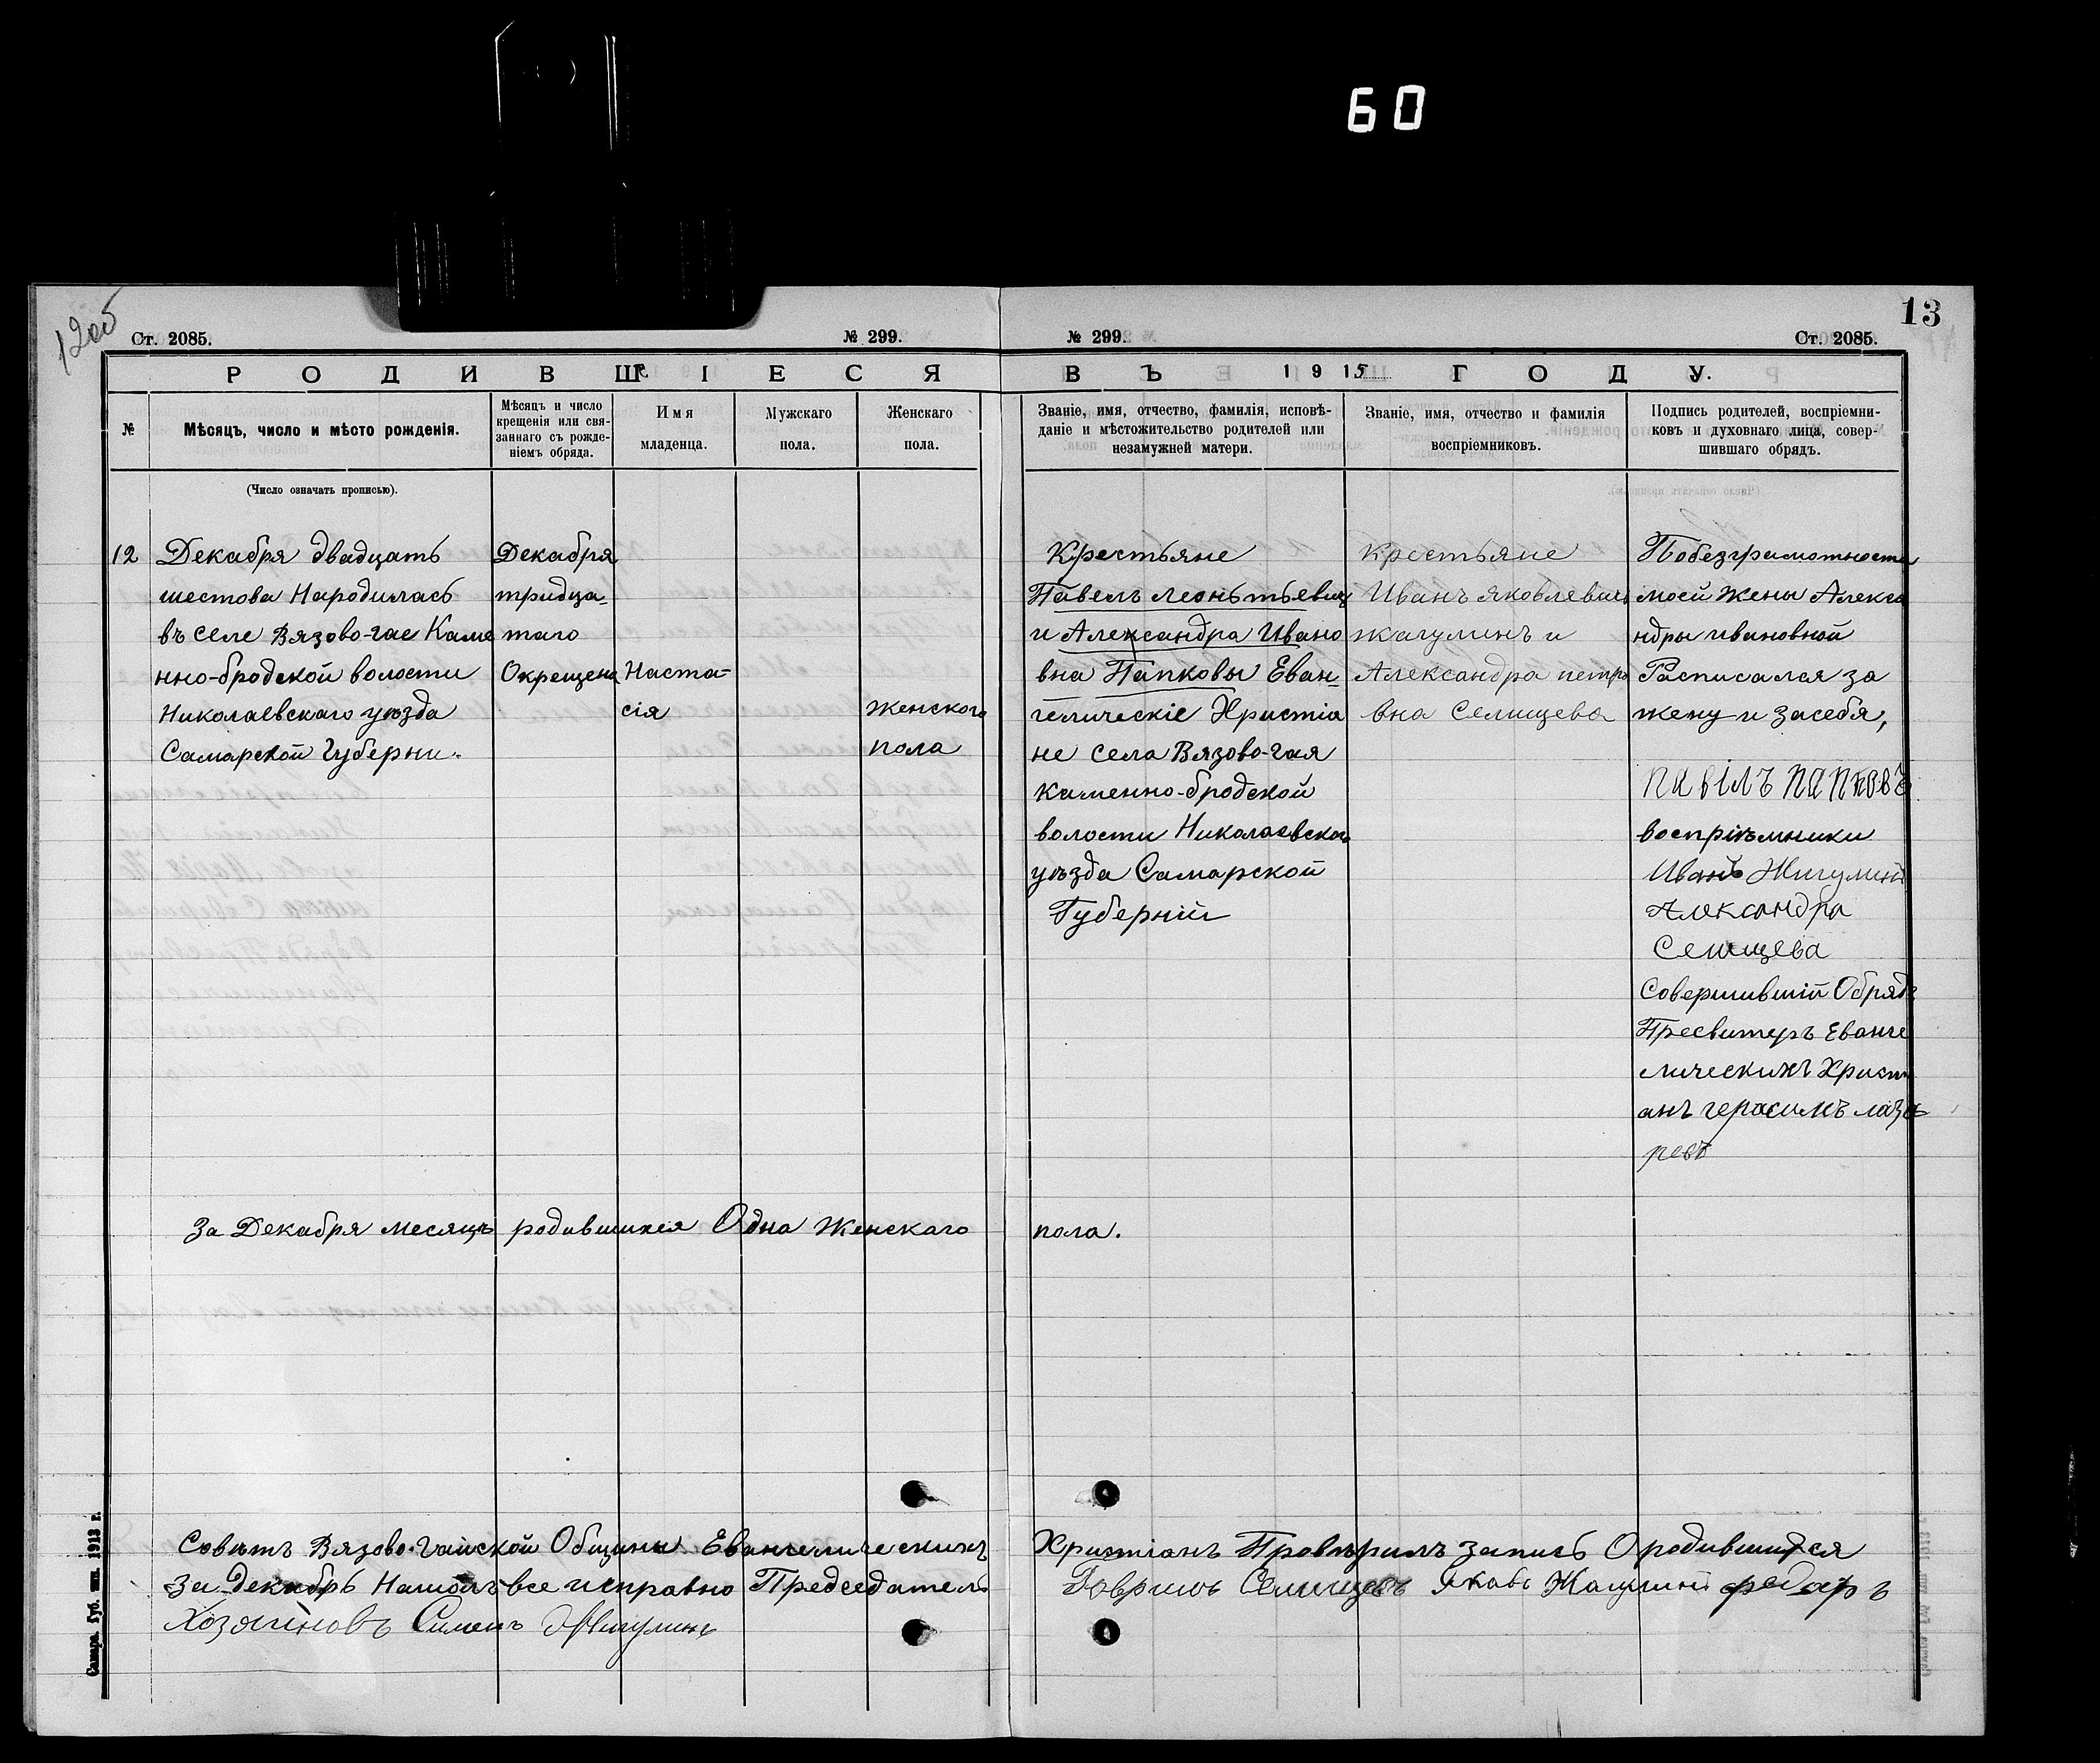 60
12об
13
Ст. 2085.
№ 299.
№ 299.
Ст. 2085.
РОДИВШІЕСЯ
ВЪ 1915 ГОДУ.
№
Мѣсяцъ, число и мѣсто рожденія.
Мѣсяцъ и число
крещенія или свя-
заннаго съ рожде-
ніемъ обряда.
Имя
младенца.
Мужскаго
пола.
Женскаго
пола.
Званіе, имя, отчество, фамилія, исповѣ-
даніе и мѣстожительство родителей или
незамужней матери.
Званіе, имя, отчество и фамилія
воспріемниковъ.
Подпись родителей, воспріемни-
ковъ и духовнаго лица, совер-
шившаго обрядъ.
(Число означать прописью).
12
Декабря двадцать
шестова Народилась
въ селе Вязово-гае Каме
нно-бродской волости
Николаевскаго уѣзда
Самарской Губерни.
Декабря
тридца-
таго
Окрещена
Наста-
сія
Женского
пола
Крестьяне
Павелъ Леонтьевич
и Александра Ивано
вна Папковы Еван-
гелическіе Христіа
не села Вязово-гая
Каменно-бродской
волости Николаевского
уѣзда Самарской
Губерній
Крестьяне
Иванъ Яковлевичъ
Жагулинъ и
Александра петро
вна Селищева
Побезграмотности
моей жены Алекса
ндры ивановной
Расписался за
жену и засебя,
Павілъ Папковъ
воспріѣмники
Иванъ Жигулинъ
Александра
Селищева
Совершившій Обрядъ
Пресвитеръ Еванге
лическихъ Христи
анъ герасимъ лаза
ревъ
За Декабря месяцъ родившихся Одна Женскаго пола.
Совѣтъ Вязово-Гайской Общины Евангелическихъ Христіанъ Провѣрилъ запись О родившихся
За Декабрь Нашолъ все исправно Председатель Гаврилъ Селищевъ Яковъ Жагулинъ федоръ
Хозяиновъ Симонъ Жигулинъ
Самара. Губ. тип. 1913 г.